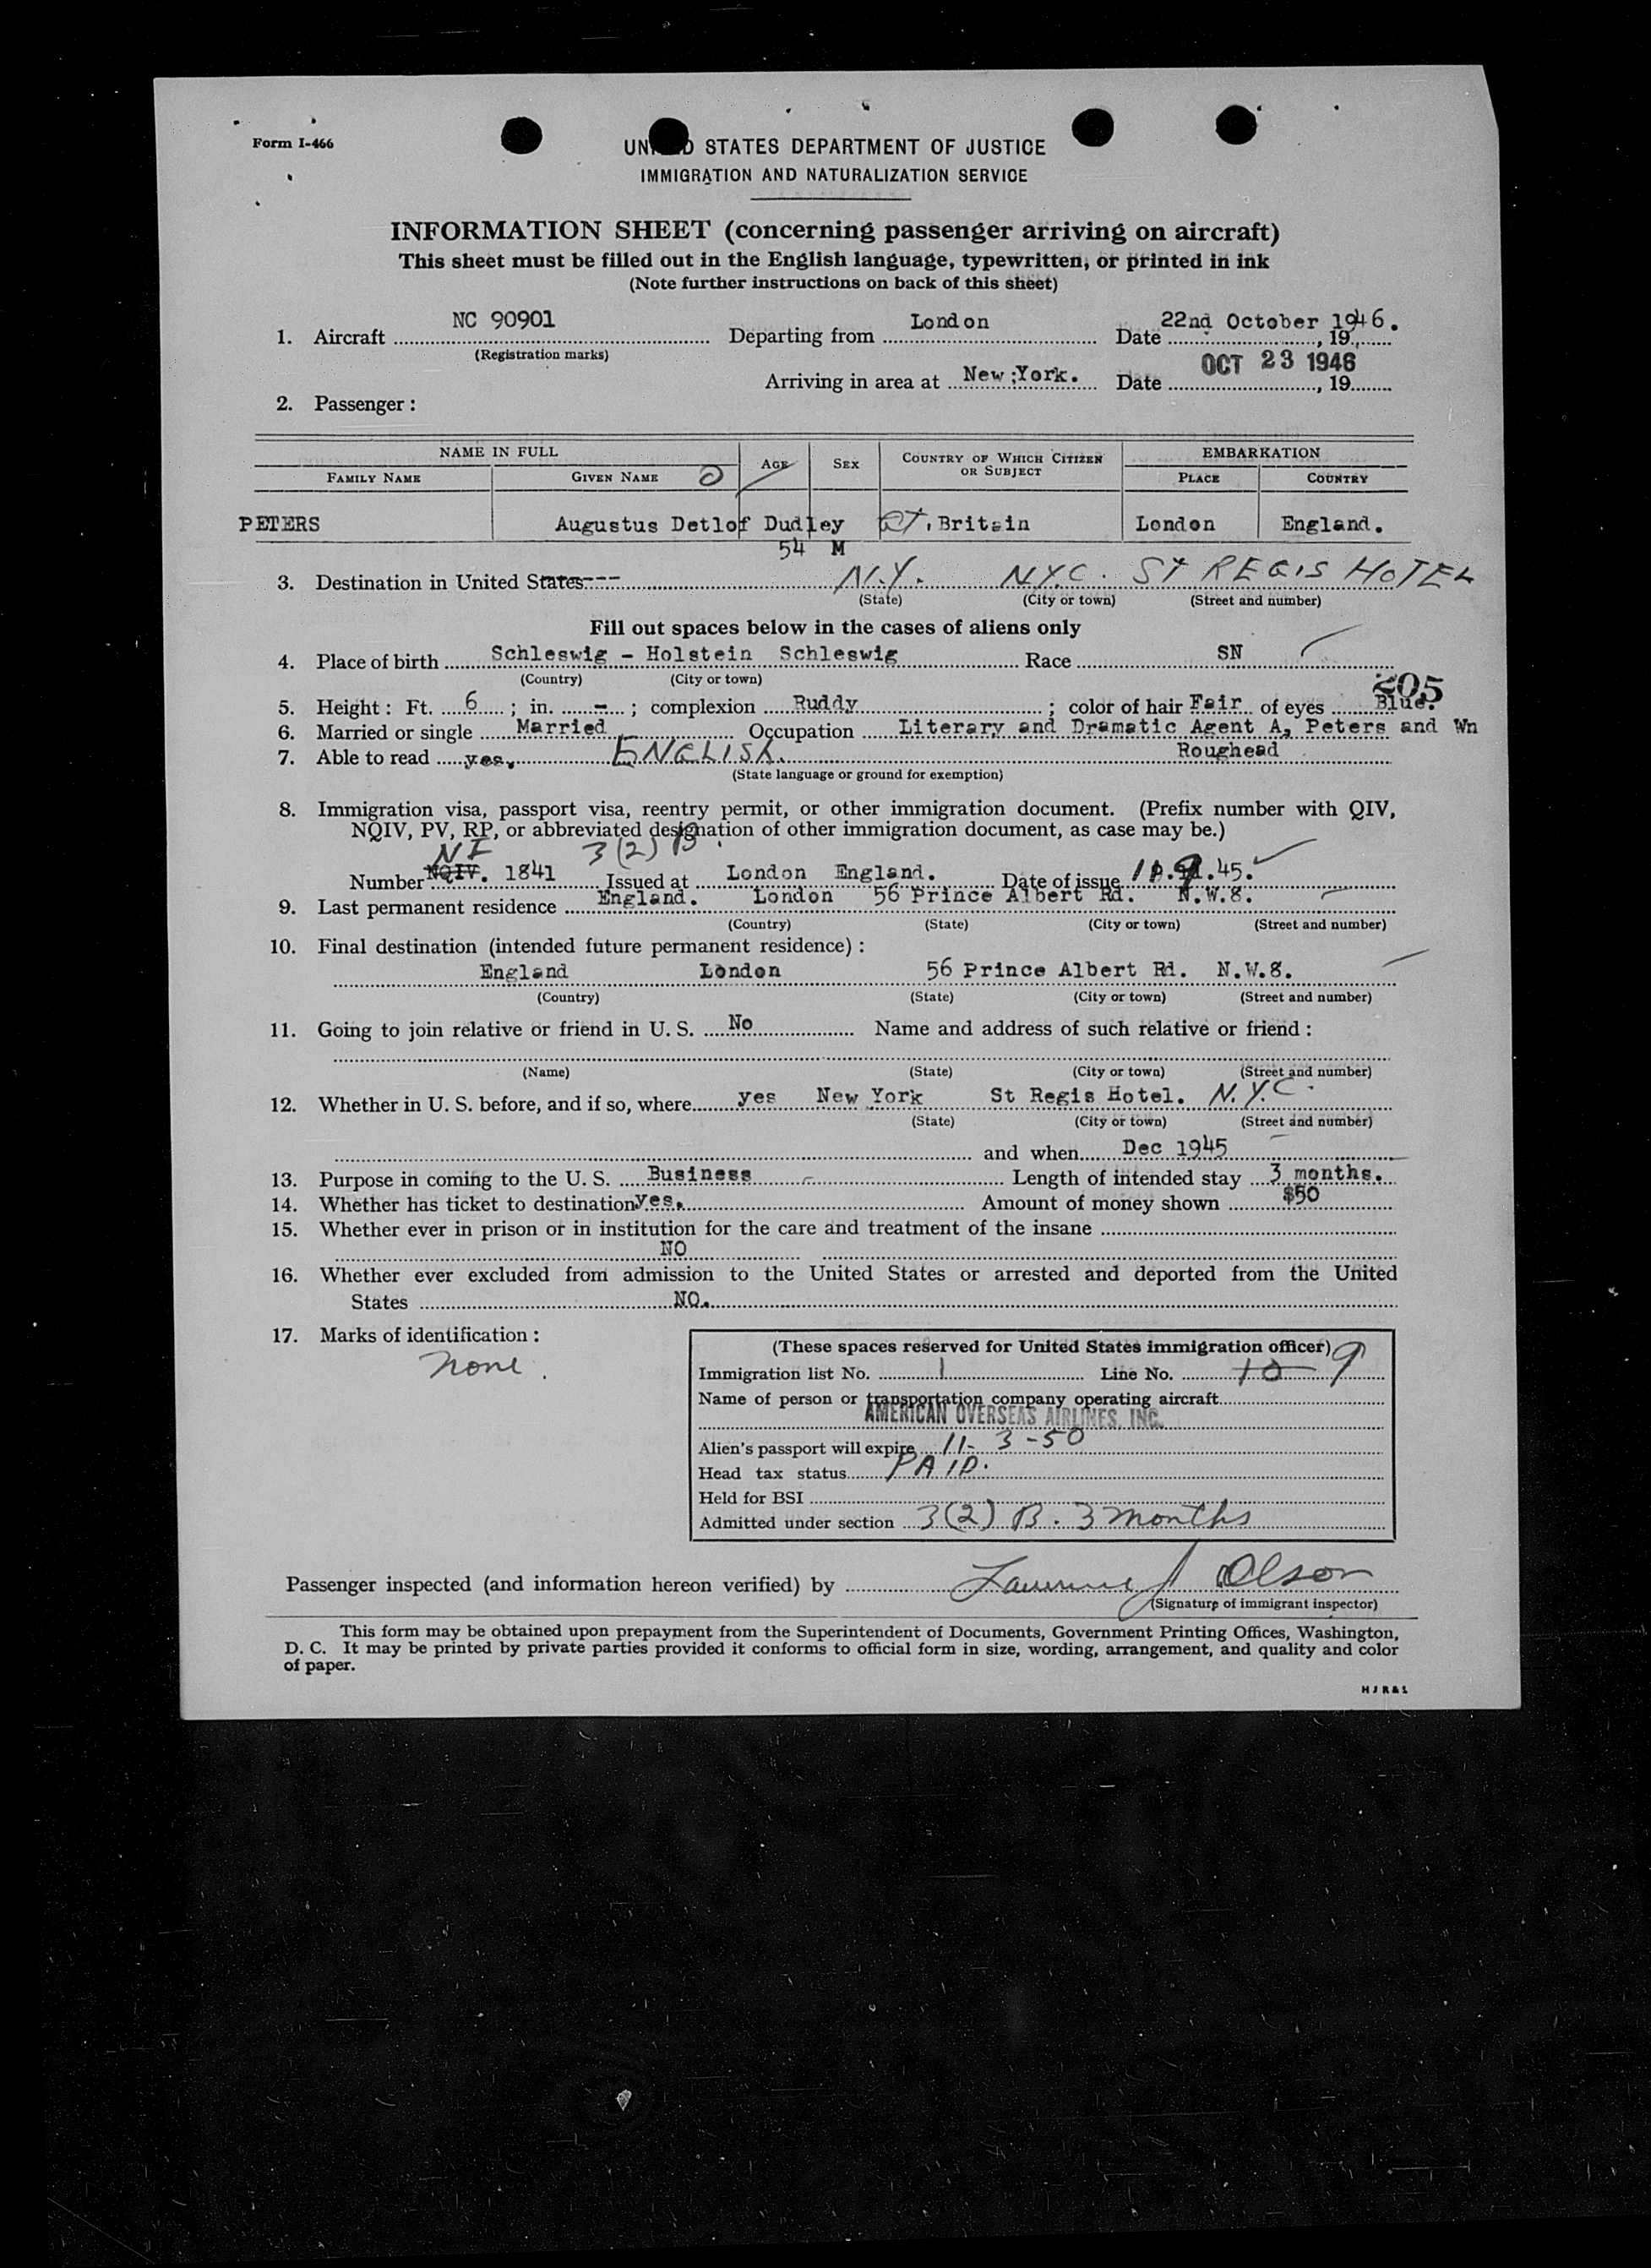 Form I-466
UN D STATES DEPARTMENT OF JUSTICE
IMMIGRATION AND NATURALIZATION SERVICE
INFORMATION SHEET (concerning passenger arriving on aircraft)
This sheet must be filled out in the English language, typewritten, or printed in ink
(Note further instructions on back of this sheet)
1. Aircraft NC 90901 Departing from London Date 22nd October 1946. , 19
(Registration marks)
Arriving in area at New York. Date OCT 23 1946 , 19
2. Passenger :
NAME IN FULL AGE SEX COUNTRY OF WHICH CITIZEN OR SUBJECT EMBARKATION
FAMILY NAME GIVEN NAME PLACE COUNTRY
PETERS Augustus Detlof Dudley GT. Britain London England.
54 M
3. Destination in United States--- N.Y. N.Y.C. ST REGIS HOTEL
(State) (City or town) (Street and number)
Fill out spaces below in the cases of aliens only
4. Place of birth Schleswig - Holstein Schleswig Race SN
(Country) (City or town)
205
5. Height : Ft. 6 ; in. - ; complexion Ruddy ; color of hair Fair of eyes Blue.
6. Married or single Married Occupation Literary and Dramatic Agent A, Peters and Wn
Roughead
7. Able to read yes, ENGLISH.
(State language or ground for exemption)
8. Immigration visa, passport visa, reentry permit, or other immigration document. (Prefix number with QIV,
NQIV, PV, RP, or abbreviated designation of other immigration document, as case may be.)
NI 3(2) B
Number NQIV. 1841 Issued at London England. Date of issue .45.
9. Last permanent residence England. London 56 Prince Albert Rd. N.W.8.
(Country) (State) (City or town) (Street and number)
10. Final destination (intended future permanent residence) :
England London 56 Prince Albert Rd. N.W.8.
(Country) (State) (City or town) (Street and number)
11. Going to join relative or friend in U. S. No Name and address of such relative or friend :
(Name) (State) (City or town) (Street and number)
12. Whether in U. S. before, and if so, where yes New York St Regis Hotel. N.Y.C.
(State) (City or town) (Street and number)
and when Dec 1945
13. Purpose in coming to the U. S. Business Length of intended stay 3 months.
14. Whether has ticket to destination yes. Amount of money shown $50
15. Whether ever in prison or in institution for the care and treatment of the insane
NO
16. Whether ever excluded from admission to the United States or arrested and deported from the United
States NO.
17. Marks of identification :
None.
(These spaces reserved for United States immigration officer)
Immigration list No. 1 Line No. 10 9
Name of person or transportation company operating aircraft
AMERICAN OVERSEAS AIRLINES, INC.
Alien's passport will expire 11-3-50
Head tax status PAID.
Held for BSI
Admitted under section 3(2) B. 3 months
Passenger inspected (and information hereon verified) by Lawrence J Olson
(Signature of immigrant inspector)
This form may be obtained upon prepayment from the Superintendent of Documents, Government Printing Offices, Washington,
D. C. It may be printed by private parties provided it conforms to official form in size, wording, arrangement, and quality and color
of paper.
H J R & S